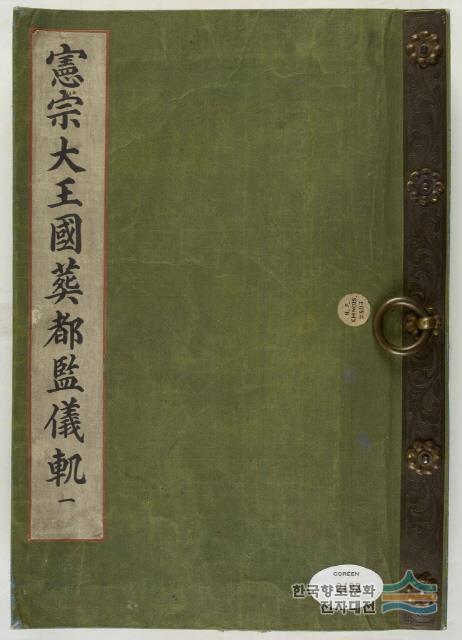 憲宗大王國葬都監儀軌 一
N. F.
CHINOIS.
COREEN
한국향토문화
전자대전